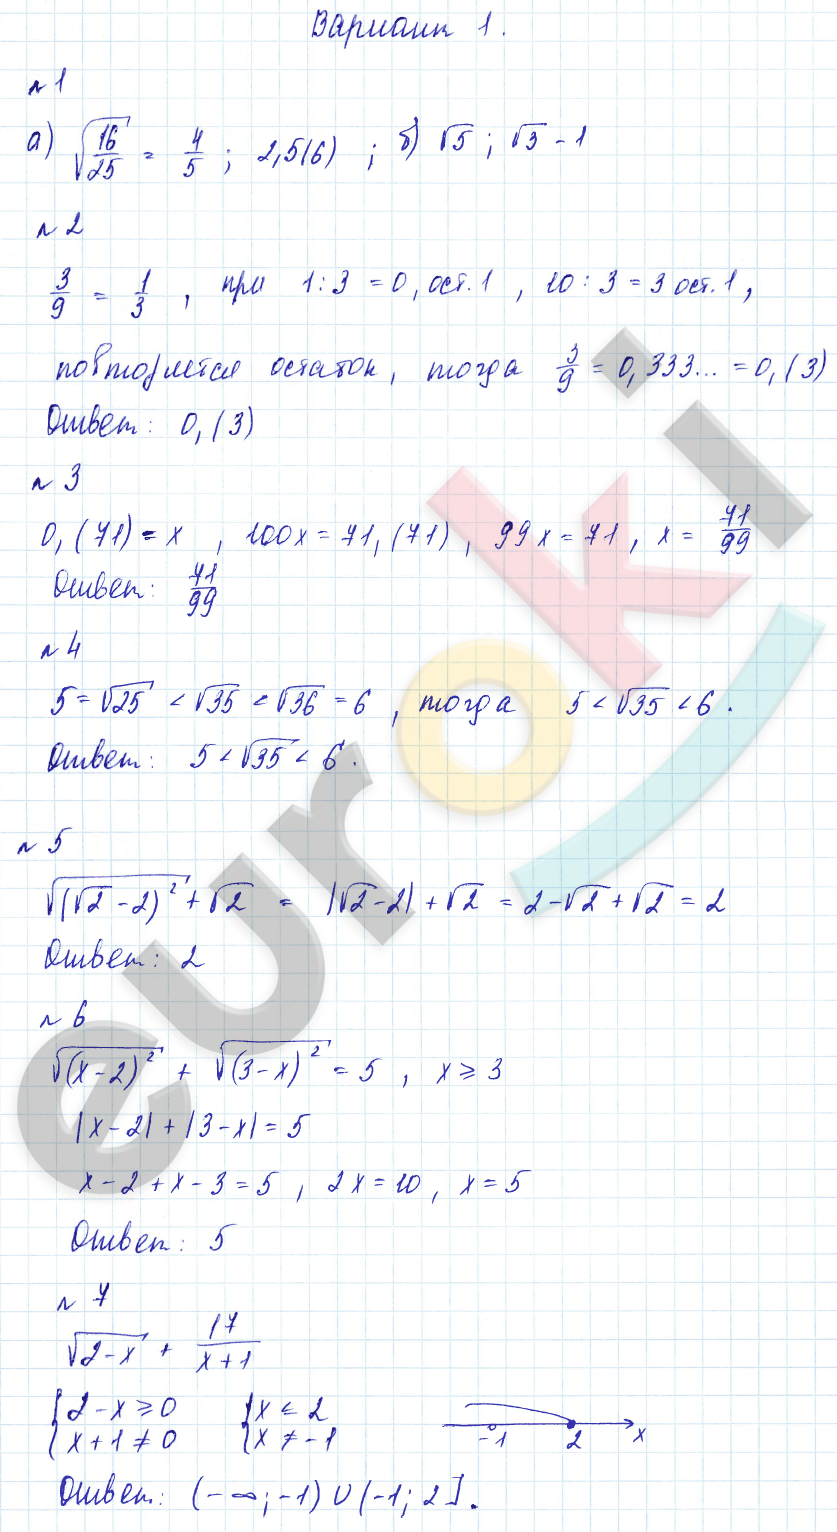 Вариант 1.
№ 1
а) √(16/25) = 4/5 ; 2,5(6) ; б) √5 ; √3 - 1
№ 2
3/9 = 1/3 , при 1 : 3 = 0, ост. 1 , 10 : 3 = 3 ост. 1 ,
повторяется остаток, тогда 3/9 = 0,333... = 0,(3)
Ответ: 0,(3)
№ 3
0,(71) = x , 100x = 71,(71) , 99x = 71 , x = 71/99
Ответ: 71/99
№ 4
5 = √25 < √35 < √36 = 6 , тогда 5 < √35 < 6 .
Ответ: 5 < √35 < 6 .
№ 5
√((√2 - 2)²) + √2 = |√2 - 2| + √2 = 2 - √2 + √2 = 2
Ответ: 2
№ 6
√((x - 2)²) + √((3 - x)²) = 5 , x ⩾ 3
|x - 2| + |3 - x| = 5
x - 2 + x - 3 = 5 , 2x = 10 , x = 5
Ответ: 5
№ 7
√(2 - x) + 17/(x + 1)
{ 2 - x ⩾ 0 { x ⩽ 2
x + 1 ≠ 0 x ≠ -1 -1 2 x
Ответ: (-∞; -1) ∪ (-1; 2].
euroki